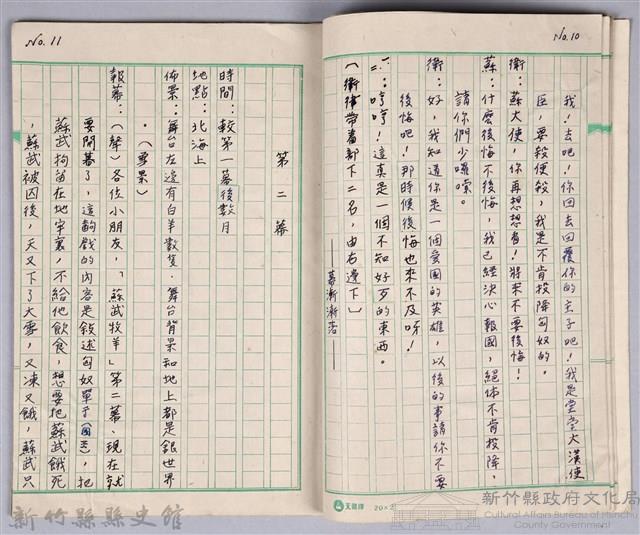 No.10
我！去吧！你回去回覆你的主子吧！我是堂堂大漢使
臣，要殺便殺，我是不肯投降匈奴的。
衛：蘇大使，你再想想看！將來不要後悔！
蘇：什麼後悔不後悔，我已經決心報國，絕体不肯投降，
請你們少囉嗦。
衛：好，我知道你是一個愛國的英雄，以後的事請你不要
後悔吧！那時候後悔也來不及呀！
哼哼！這真是一個不知好歹的東西。
（衛律帶番部下二名，由右邊下）
——幕漸漸落——
20×2
No.11
第二幕
時間：較第一幕後數月
地點：北海上
佈景：舞台左邊有白羊數隻．舞台背景和地上都是銀世界
．（雪景）
報幕：（聲）各位小朋友，「蘇武牧羊」第二幕、現在就
要開幕了，這齣戲的內容是敘述匈奴單于，把
蘇武拘留在地窖裏，不給他飲食，想要把蘇武餓死
，蘇武被囚後，天又下了大雪，又凍又餓，蘇武只
新竹縣縣史館
新竹縣政府文化局
Cultural Affairs Bureau of Hsinchu
County Government